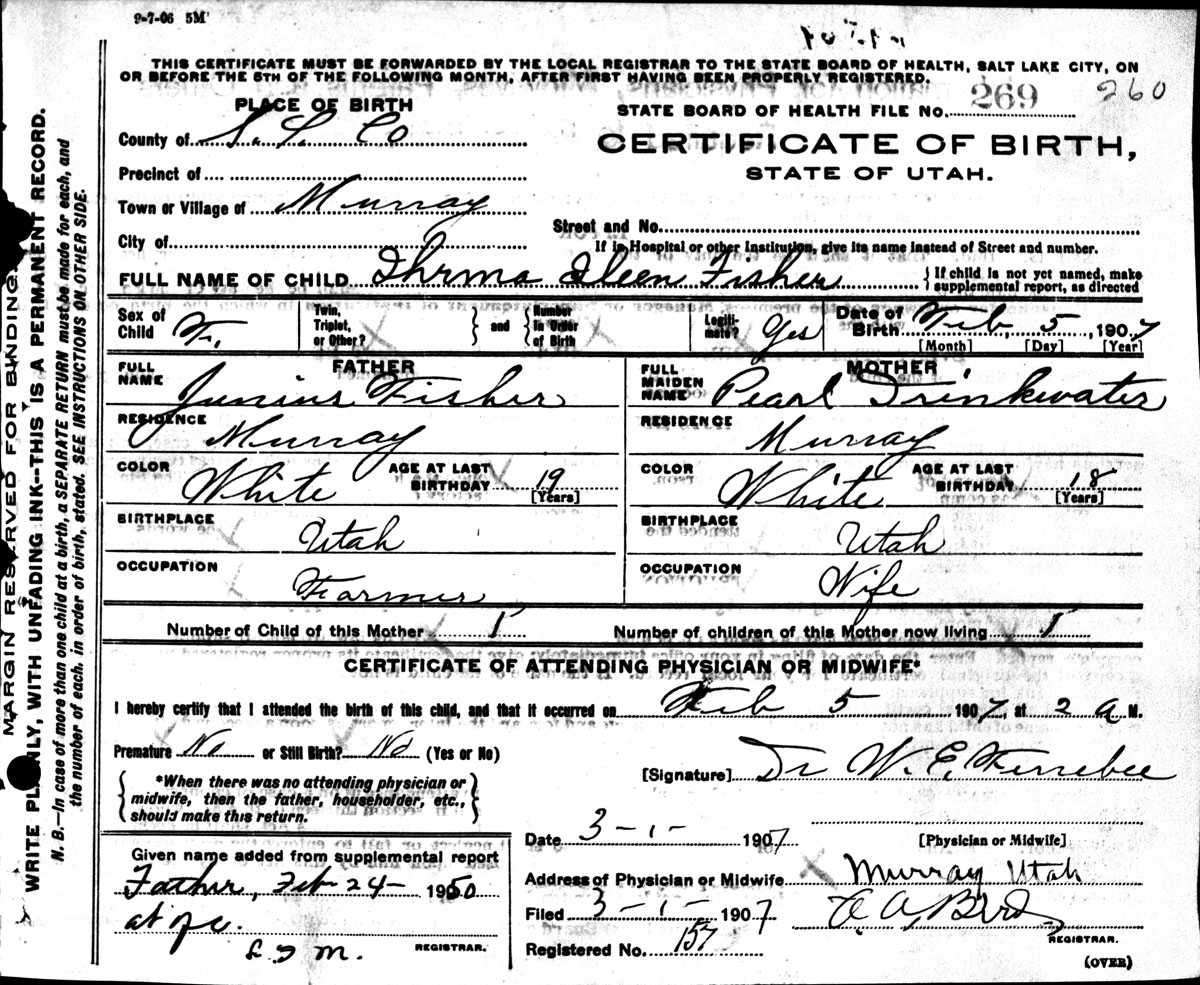 9-7-06 5M
THIS CERTIFICATE MUST BE FORWARDED BY THE LOCAL REGISTRAR TO THE STATE BOARD OF HEALTH, SALT LAKE CITY, ON
OR BEFORE THE 5TH OF THE FOLLOWING MONTH, AFTER FIRST HAVING BEEN PROPERLY REGISTERED.
PLACE OF BIRTH
STATE BOARD OF HEALTH FILE No. 269 260
County of S. L. Co
CERTIFICATE OF BIRTH,
STATE OF UTAH.
Precinct of
Town or Village of Murray
Street and No.
City of
If in Hospital or other Institution, give its name instead of Street and number.
FULL NAME OF CHILD Thrma Ileen Fisher { If child is not yet named, make
supplemental report, as directed
Sex of Child F. Twin, Triplet, or Other? } and { Number in Order of Birth Legiti-mate? Yes Date of Birth Feb 5, 1907
[Month] [Day] [Year]
FATHER MOTHER
FULL NAME Junius Fisher FULL MAIDEN NAME Pearl Drinkwater
RESIDENCE Murray RESIDENCE Murray
COLOR White AGE AT LAST BIRTHDAY 19 [Years] COLOR White AGE AT LAST BIRTHDAY 18 [Years]
BIRTHPLACE Utah BIRTHPLACE Utah
OCCUPATION Farmer OCCUPATION Wife
Number of Child of this Mother 1 Number of children of this Mother now living 1
CERTIFICATE OF ATTENDING PHYSICIAN OR MIDWIFE*
I hereby certify that I attended the birth of this child, and that it occurred on Feb 5 1907, at 2 a M.
Premature No or Still Birth? No (Yes or No)
[Signature] Dr W. E. Ferrebee
*When there was no attending physician or
midwife, then the father, householder, etc.,
should make this return.
Date 3-1- 1907 [Physician or Midwife]
Given name added from supplemental report
Father, Feb 24- 1950
Address of Physician or Midwife Murray Utah
Filed 3-1- 1907
REGISTRAR.
L. I. M. REGISTRAR.
Registered No. 157
(OVER)
MARGIN RESERVED FOR BINDING.
WRITE PLAINLY, WITH UNFADING INK--THIS IS A PERMANENT RECORD.
N. B.—In case of more than one child at a birth, a SEPARATE RETURN must be made for each, and
the number of each, in order of birth, stated. SEE INSTRUCTIONS ON OTHER SIDE.